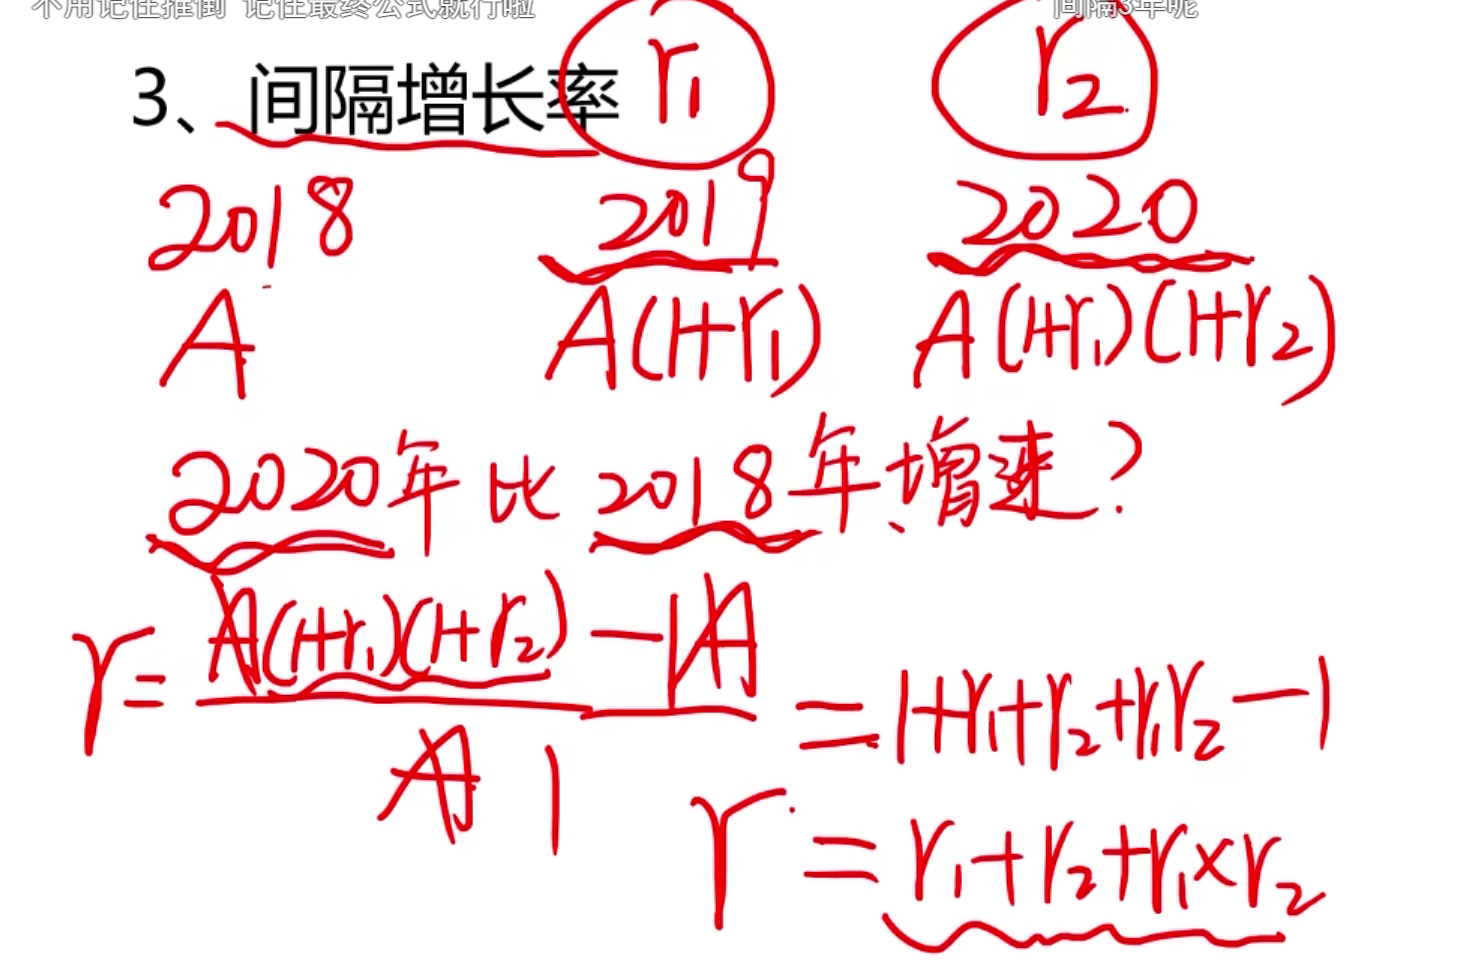 不用记住推倒 记住最终公式就行啦 间隔3年呢
3、间隔增长率 r₁ r₂
2018 2019 2020
A A(1+r₁) A(1+r₁)(1+r₂)
2020年比2018年增速?
r= A(1+r₁)(1+r₂) - 1A
A 1
=1+r₁+r₂+r₁r₂-1
r=r₁+r₂+r₁×r₂